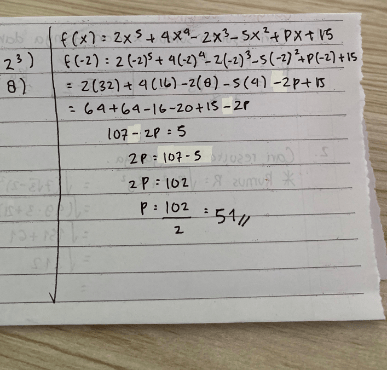 f(x) = 2x⁵ + 4x⁴ - 2x³ - 5x² + px + 15
2³)
f(-2) = 2(-2)⁵ + 4(-2)⁴ - 2(-2)³ - 5(-2)² + p(-2) + 15
8)
= 2(32) + 4(16) - 2(8) - 5(4) - 2p + 15
= 64 + 64 - 16 - 20 + 15 - 2p
107 - 2p = 5
2p = 107 - 5
2p = 102
p = 102/2 = 51//